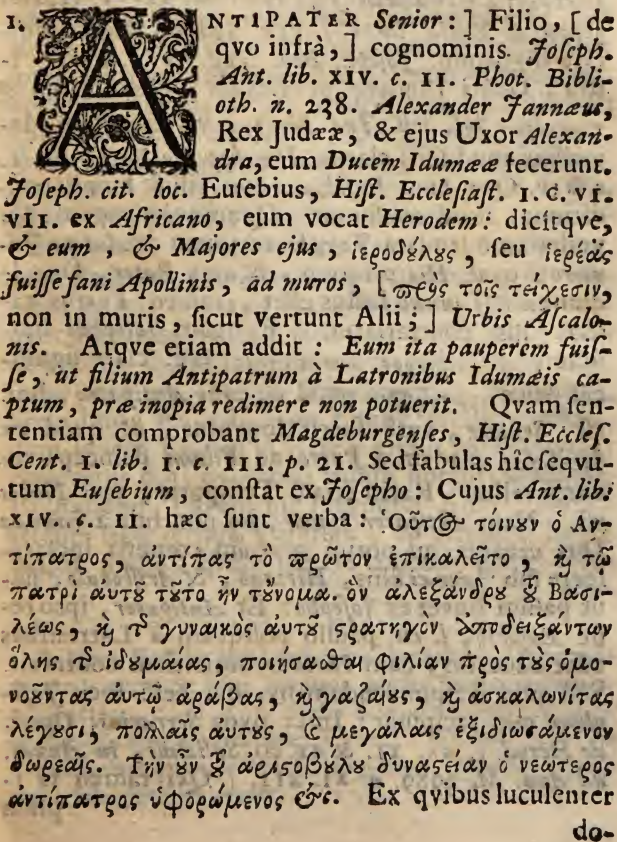 1. ANTIPATER Senior:] Filio, [de
qvo infrà,] cognominis. Joſeph.
Ant. lib. XIV. c. II. Phot. Bibli-
oth. n. 238. Alexander Jannæus,
Rex Judææ, & ejus Uxor Alexan-
dra, eum Ducem Idumææ fecerunt.
Joſeph. cit. loc. Euſebius, Hiſt. Eccleſiaſt. I. c. VI.
VII. ex Africano, eum vocat Herodem: dicitqve,
& eum, & Majores ejus, ἱεροδύλȣς, ſeu ἱερέας
fuiſſe fani Apollinis, ad muros, [πρὸς τοῖς τείχεσιν,
non in muris, ſicut vertunt Alii;] Urbis Aſcalo-
nis. Atqve etiam addit: Eum ita pauperem fuiſ-
ſe, ut filium Antipatrum à Latronibus Idumæis ca-
ptum, præ inopia redimere non potuerit. Qvam ſen-
tentiam comprobant Magdeburgenſes, Hiſt. Eccleſ.
Cent. I. lib. I. c. III. p. 21. Sed fabulas hîc ſeqvu-
tum Euſebium, conſtat ex Joſepho: Cujus Ant. lib:
XIV. c. II. hæc ſunt verba: Οὗτος τόινυν ὁ Αν-
τίπατρος, ἀντίπας τὸ πρῶτον ἐπικαλεῖτο, ϗ τῷ
πατρὶ ἀυτȣ͂ τȣ͂το ἦν τȣ͂νομα. ὃν ἀλεξάνδρȣ τȣ͂ Βασι-
λέως, ϗ τ͂ γυναικὸς ἀυτȣ͂ ϛρατηγὸν ἀποδειξάντων
ὅλης τ͂ ἰδȣμαίας, ποιήσασθαι φιλίαν πρὸς τȣ̀ς ὁμο-
νοȣ͂ντας ἀυτῷ ἀράβας, ϗ γαζαίȣς, ϗ ἀσκαλωνίτας
λέγȣσι, πολλαῖς ἀυτȣ̀ς, ϗ μεγάλαις ἐξιδιωσάμενον
δωρεαῖς. Τὴν ȣ͂ν τȣ͂ ἀριϛοβȣ́λȣ δυναϛείαν ὁ νεώτερος
ἀντίπατρος ὑφορώμενος &c. Ex qvibus luculenter
do-